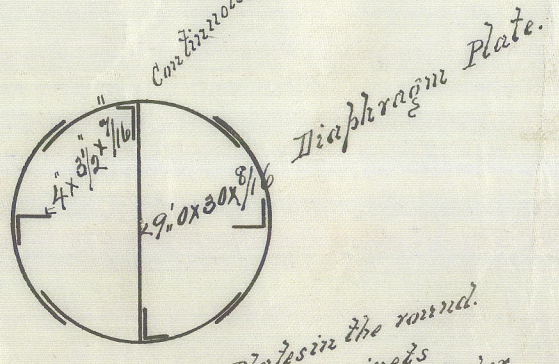 Continuous
Diaphragm Plate.
4" x 3 1/2" x 7/16"
9".0 x 30 x 8/16
Plates in the round.
rivets